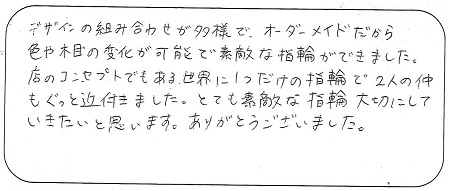 デザインの組み合わせが多様で、オーダーメイドだから
色や木目の変化が可能で素敵な指輪ができました。
店のコンセプトでもある、世界に1つだけの指輪で2人の仲
もぐっと近付きました。とても素敵な指輪大切にして
いきたいと思います。ありがとうございました。